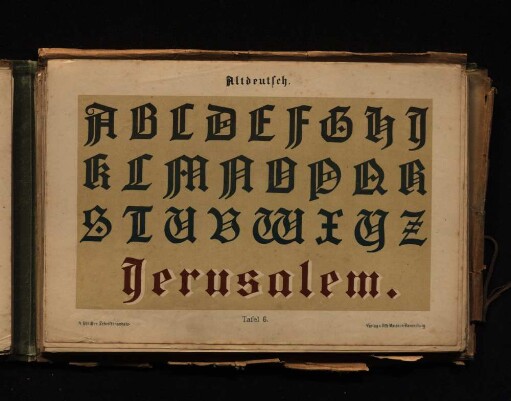 Altdeutsch.
A B C D E F G H I
K L M N O P Q R
S T U V W X Y Z
Jerusalem.
Tafel 6.